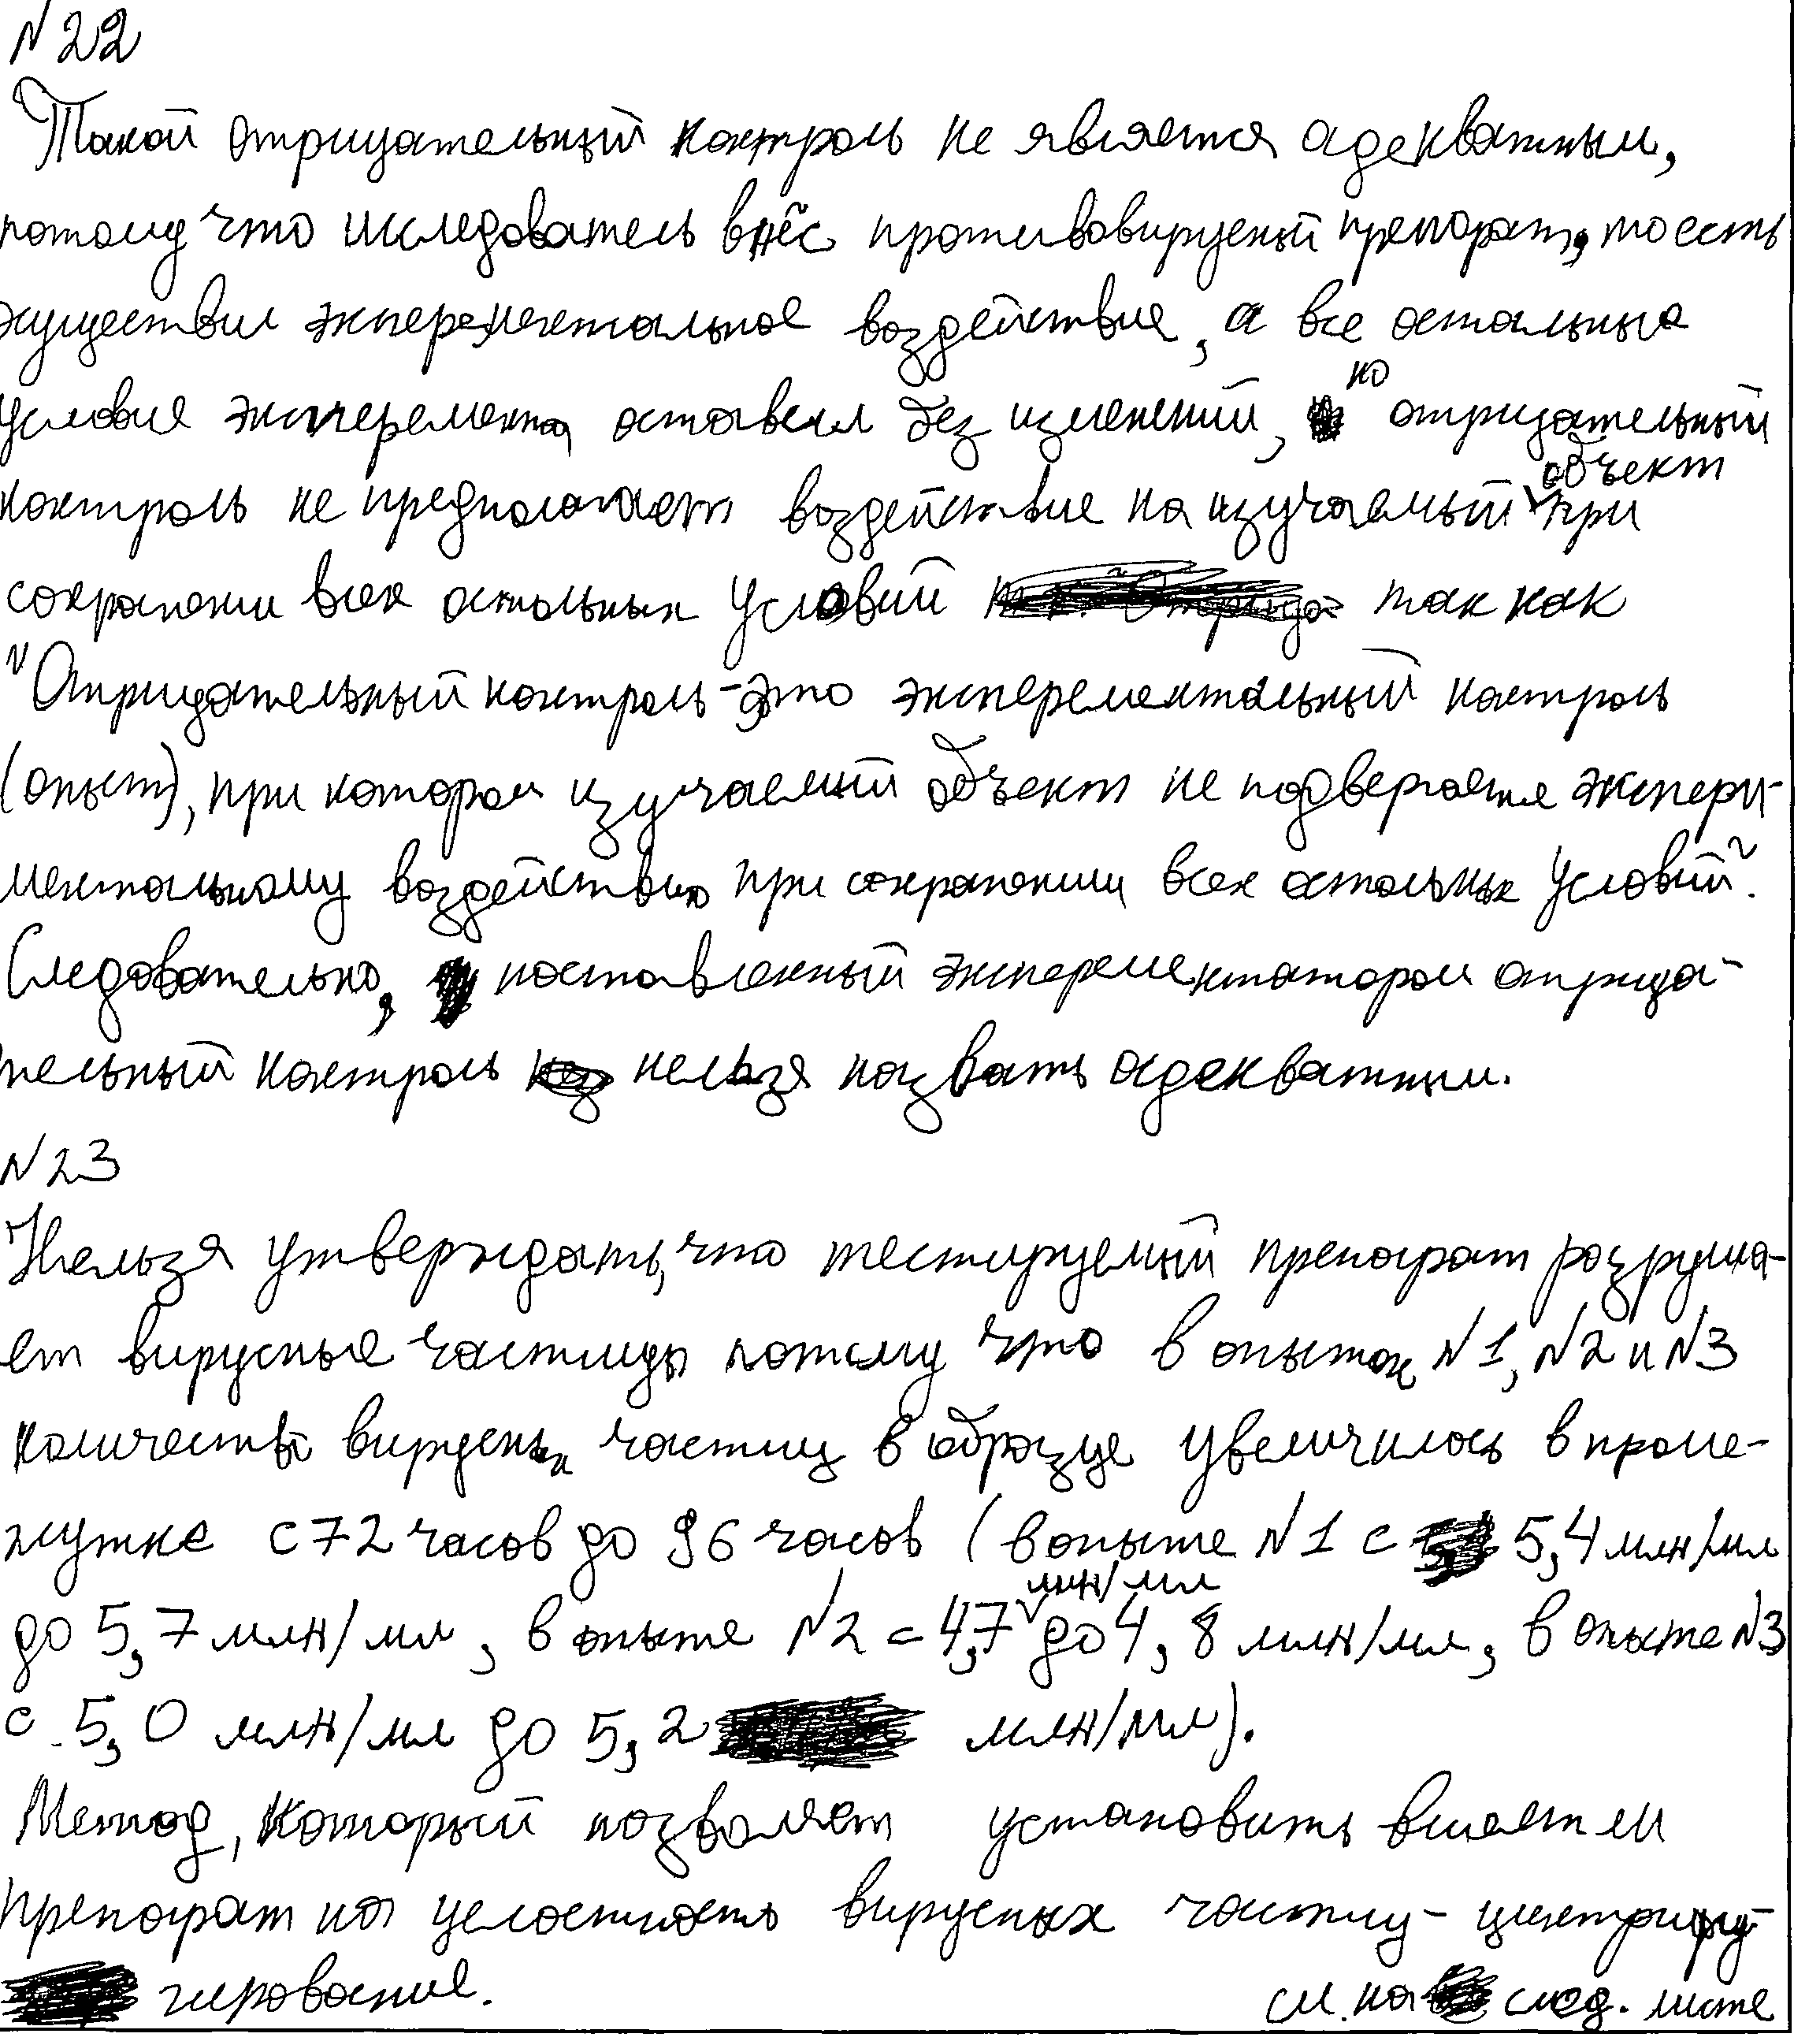 №22
Такой отрицательный контроль не является адекватным,
потому что исследователь внёс противовирусный препарат, то есть
осуществил эксперементальное воздействие, а все остальные
условия эксперемента оставил без изменений, но отрицательный
контроль не предполагает воздействие на изучаемый объект при
сохранении всех остальных условий так как
"Отрицательный контроль - это эксперементальный контроль
(опыт), при котором изучаемый объект не подвергается экспери-
ментальному воздействию при сохранении всех остальных условий".
Следовательно, поставленный эксперементатором отрица-
тельный контроль нельзя назвать адекватным.
№23
Нельзя утверждать, что тестируемый препарат разруша-
ет вирусные частицы потому что в опытах №1, №2 и №3
количество вирусных частиц в образце увеличилось в проме-
жутке с 72 часов до 96 часов (в опыте №1 с 5,4 млн/мл
до 5,7 млн/мл, в опыте №2 с 4,7 млн/мл до 4,8 млн/мл, в опыте №3
с 5,0 млн/мл до 5,2 млн/мл).
Метод, который позволяет установить влияет ли
препарат на целостность вирусных частиц - центрифу-
гирование. см. на след. листе